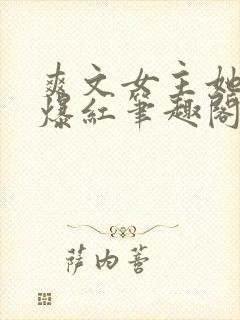 爽文女主她
爆红笔趣阁
萨内菩